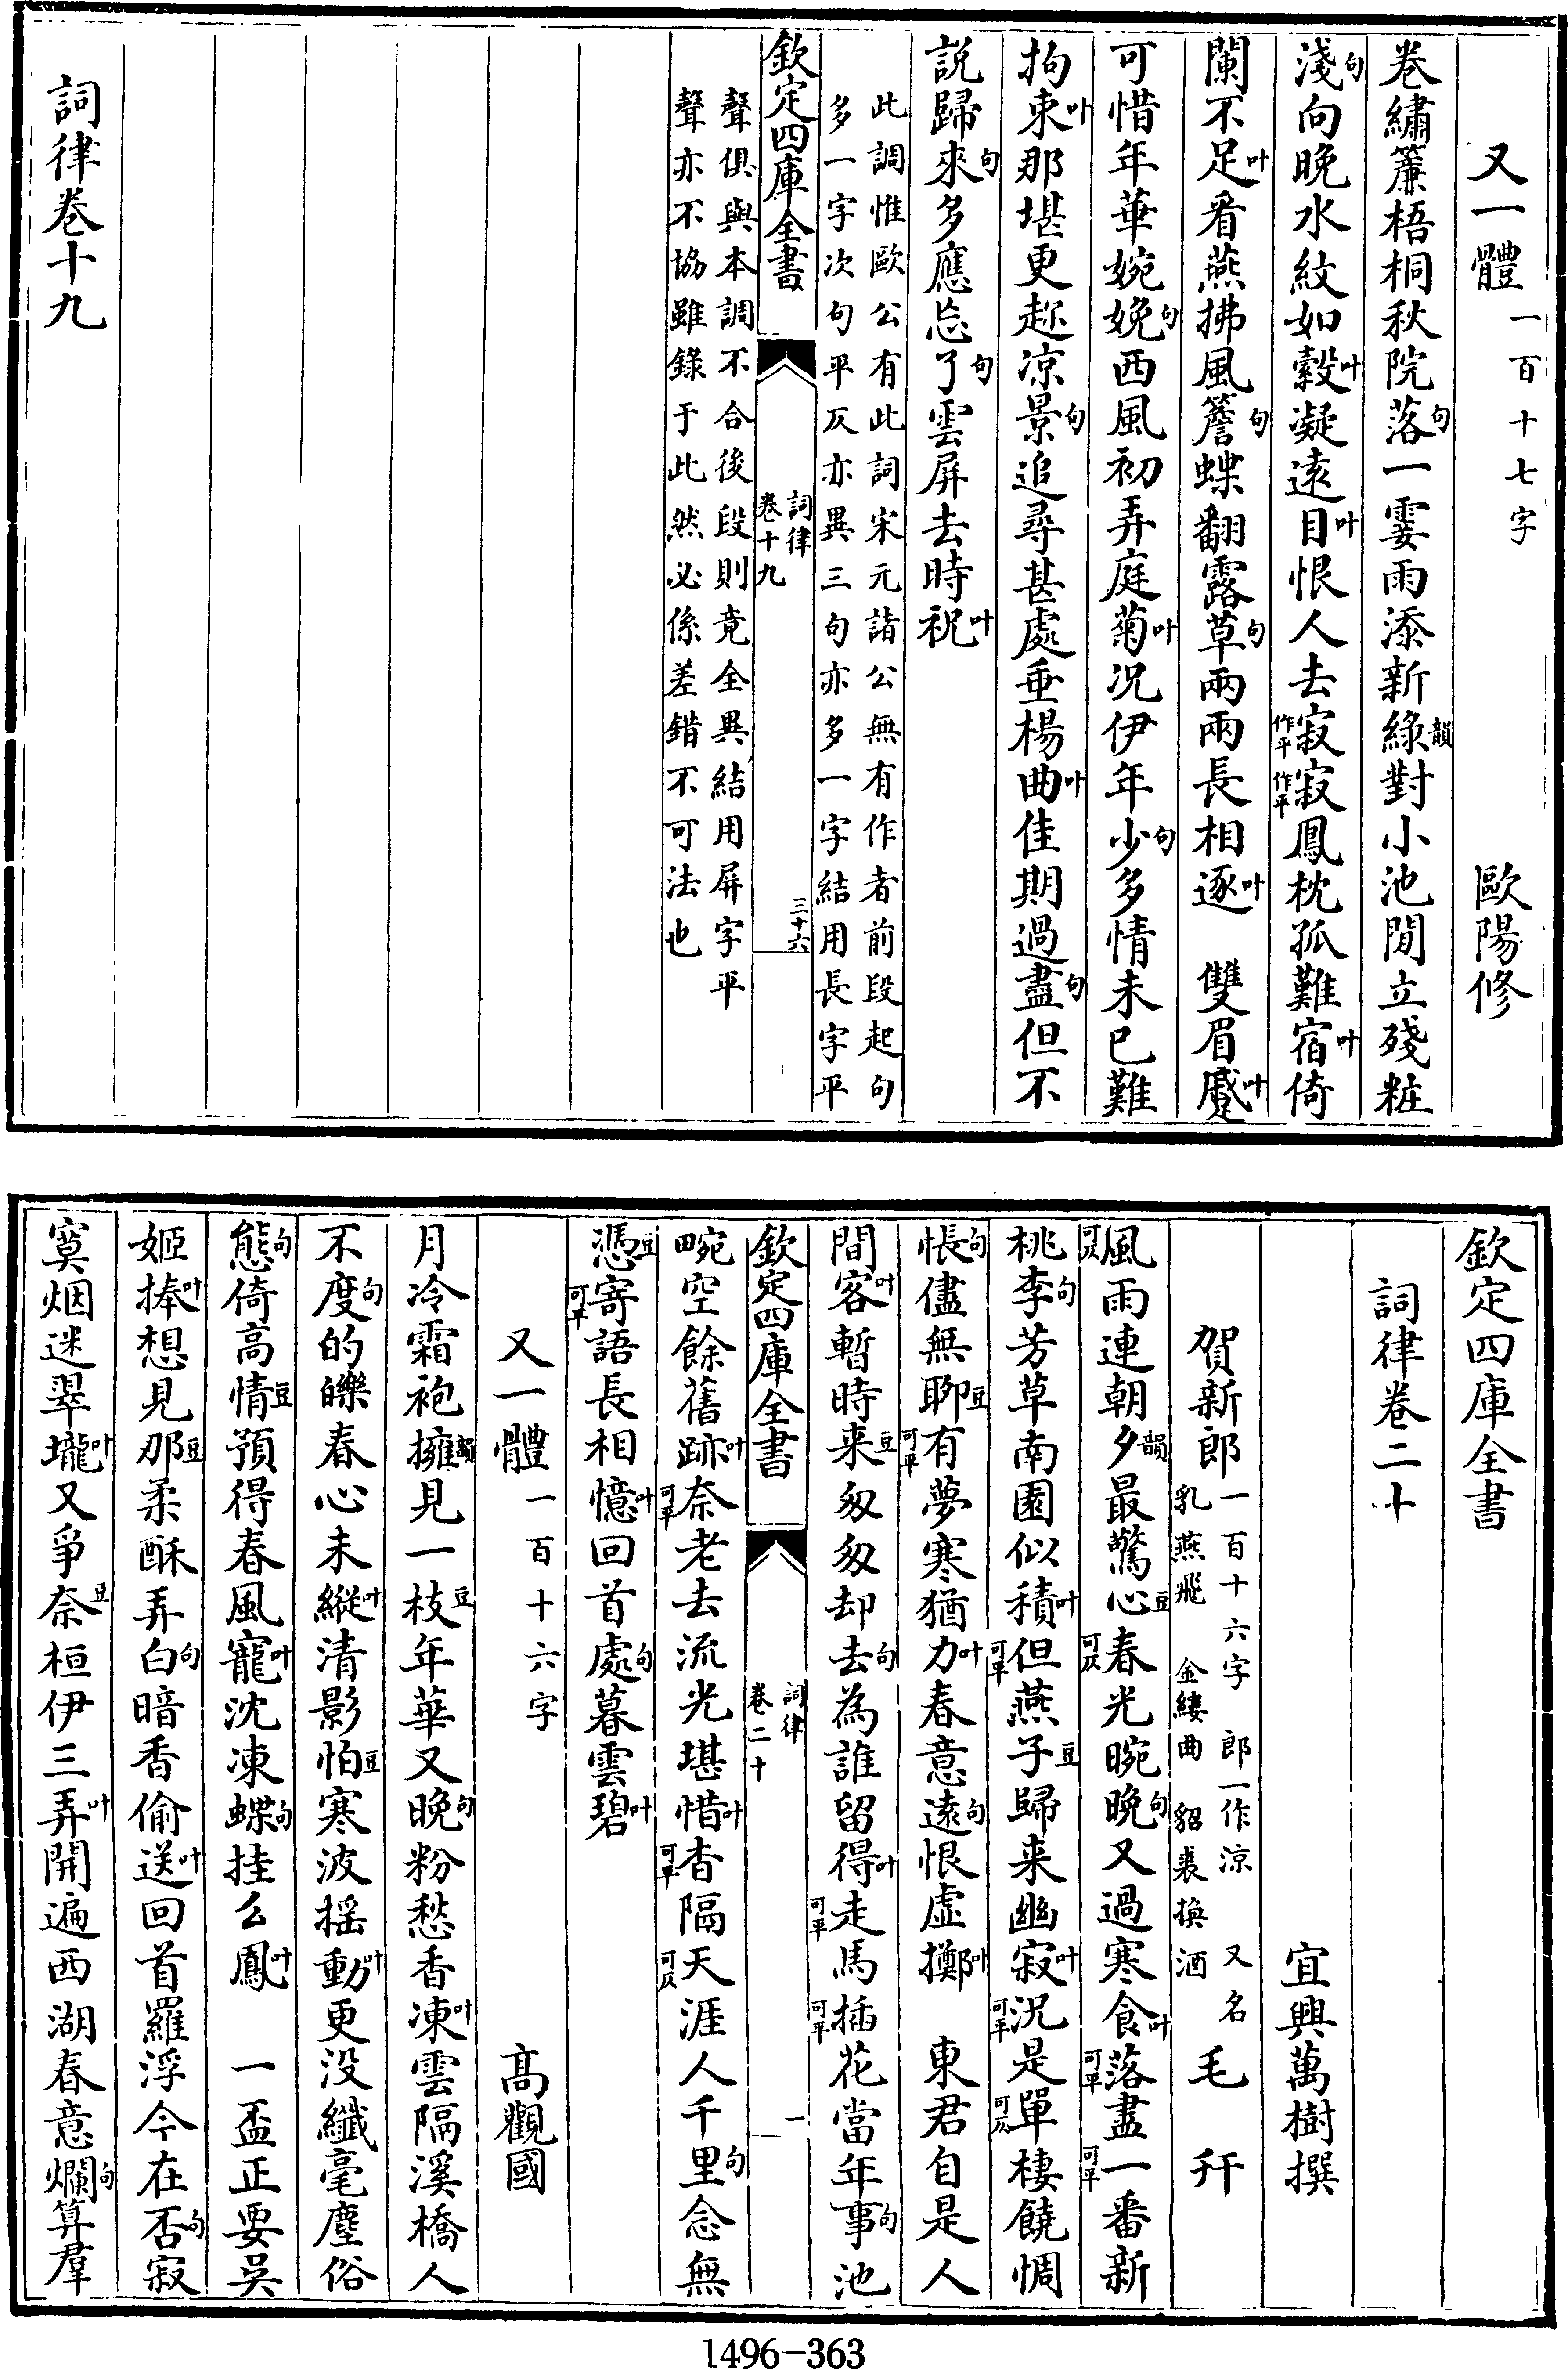 又一體 一百十七字 歐陽修
卷繡簾梧桐秋院落句一霎雨添新綠韻對小池閒立殘粧
淺句向晚水紋如縠叶凝遠目叶恨人去寂作平寂作平鳳枕孤難宿叶倚
闌不足叶看燕拂風簷句蝶翻露草句兩兩長相逐叶 雙眉蹙叶
可惜年華婉娩句西風初弄庭菊叶况伊年少句多情未已難
拘束叶那堪更趂凉景句追尋甚處垂楊曲叶佳期過盡句但不
説歸來句多應忘了句雲屏去時祝叶
此調惟歐公有此詞宋元諸公無有作者前段起句
多一字次句平仄亦異三句亦多一字結用長字平
欽定四庫全書 詞律 卷十九 三十六
聲俱與本調不合後段則竟全異結用屏字平
聲亦不協雖錄于此然必係差錯不可法也
詞律卷十九
欽定四庫全書
詞律卷二十
宜興萬樹撰
賀新郎 一百十六字 郎一作涼 又名 乳燕飛 金縷曲 貂裘換酒 毛幵
可仄風雨連朝夕韻最驚心豆可仄春光晼晚句又過寒食叶可平落盡可平一番新
桃李句芳草南園似積叶可平但燕子豆歸来幽寂叶可平況是可仄單棲饒惆
悵句儘無聊豆可平有夢寒猶力叶春意遠句恨虛擲叶 東君自是人
間客叶暫時来豆匆匆却去句為誰留得叶可平走馬可平插花當年事句池
欽定四庫全書 詞律 卷二十 一
畹空餘舊跡叶可平奈老去流光堪惜叶可平杳隔可仄天涯人千里句念無
憑豆可平寄語長相憶叶回首處句暮雲碧叶
又一體 一百十六字 高觀國
月冷霜袍擁韻見一枝豆年華又晚句粉愁香凍叶雲隔溪橋人
不度句的皪春心未縱叶清影怕豆寒波摇動叶更没纖毫塵俗
態句倚高情豆預得春風寵叶沈凍蝶句挂么鳳叶 一盃正要吳
姬捧叶想見那豆柔酥弄白句暗香偷送叶回首羅浮今在否句寂
寞烟迷翠壠叶又爭奈豆桓伊三弄叶開遍西湖春意爛句算羣
1496-363